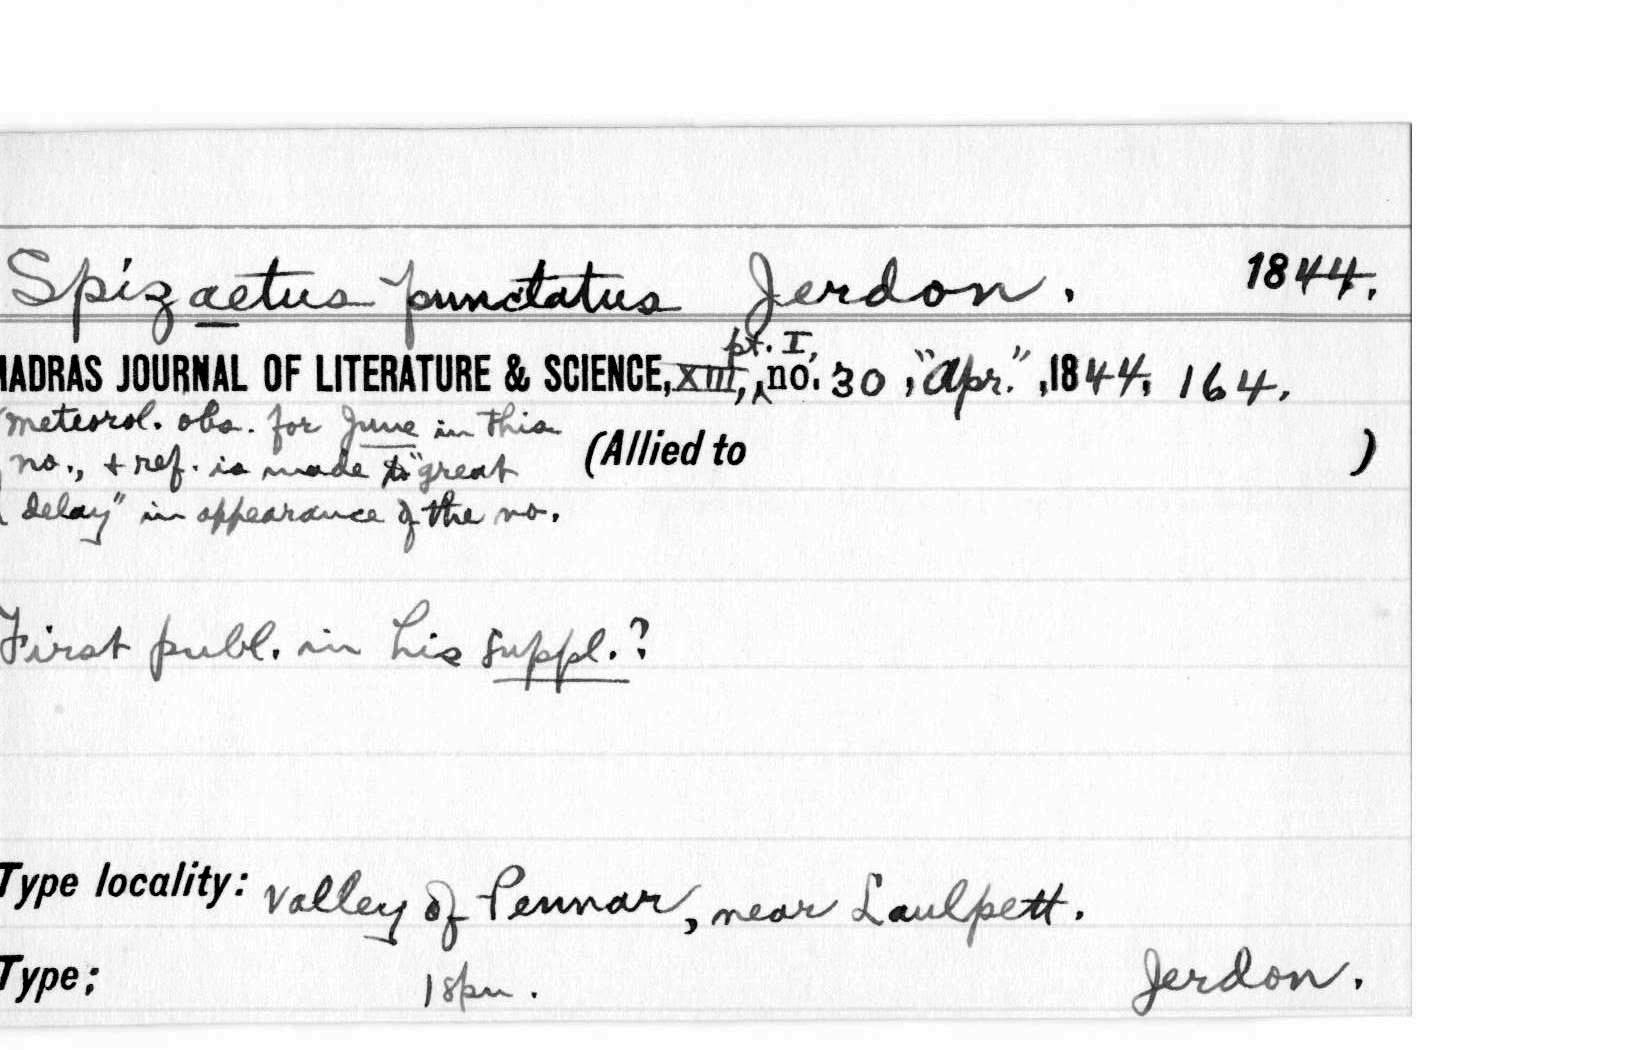 Spizaetus punctatus Jerdon. 1844.
MADRAS JOURNAL OF LITERATURE & SCIENCE, XIII, pt. I, no. 30, "Apr.", 1844, 164.
meteorol. obs. for June in this
no., + ref. is made to "great
delay" in appearance of the no.
(Allied to )
First publ. in his suppl.?
Type locality: valley of Pennar, near Laulpett.
Type; 1 spn. Jerdon.